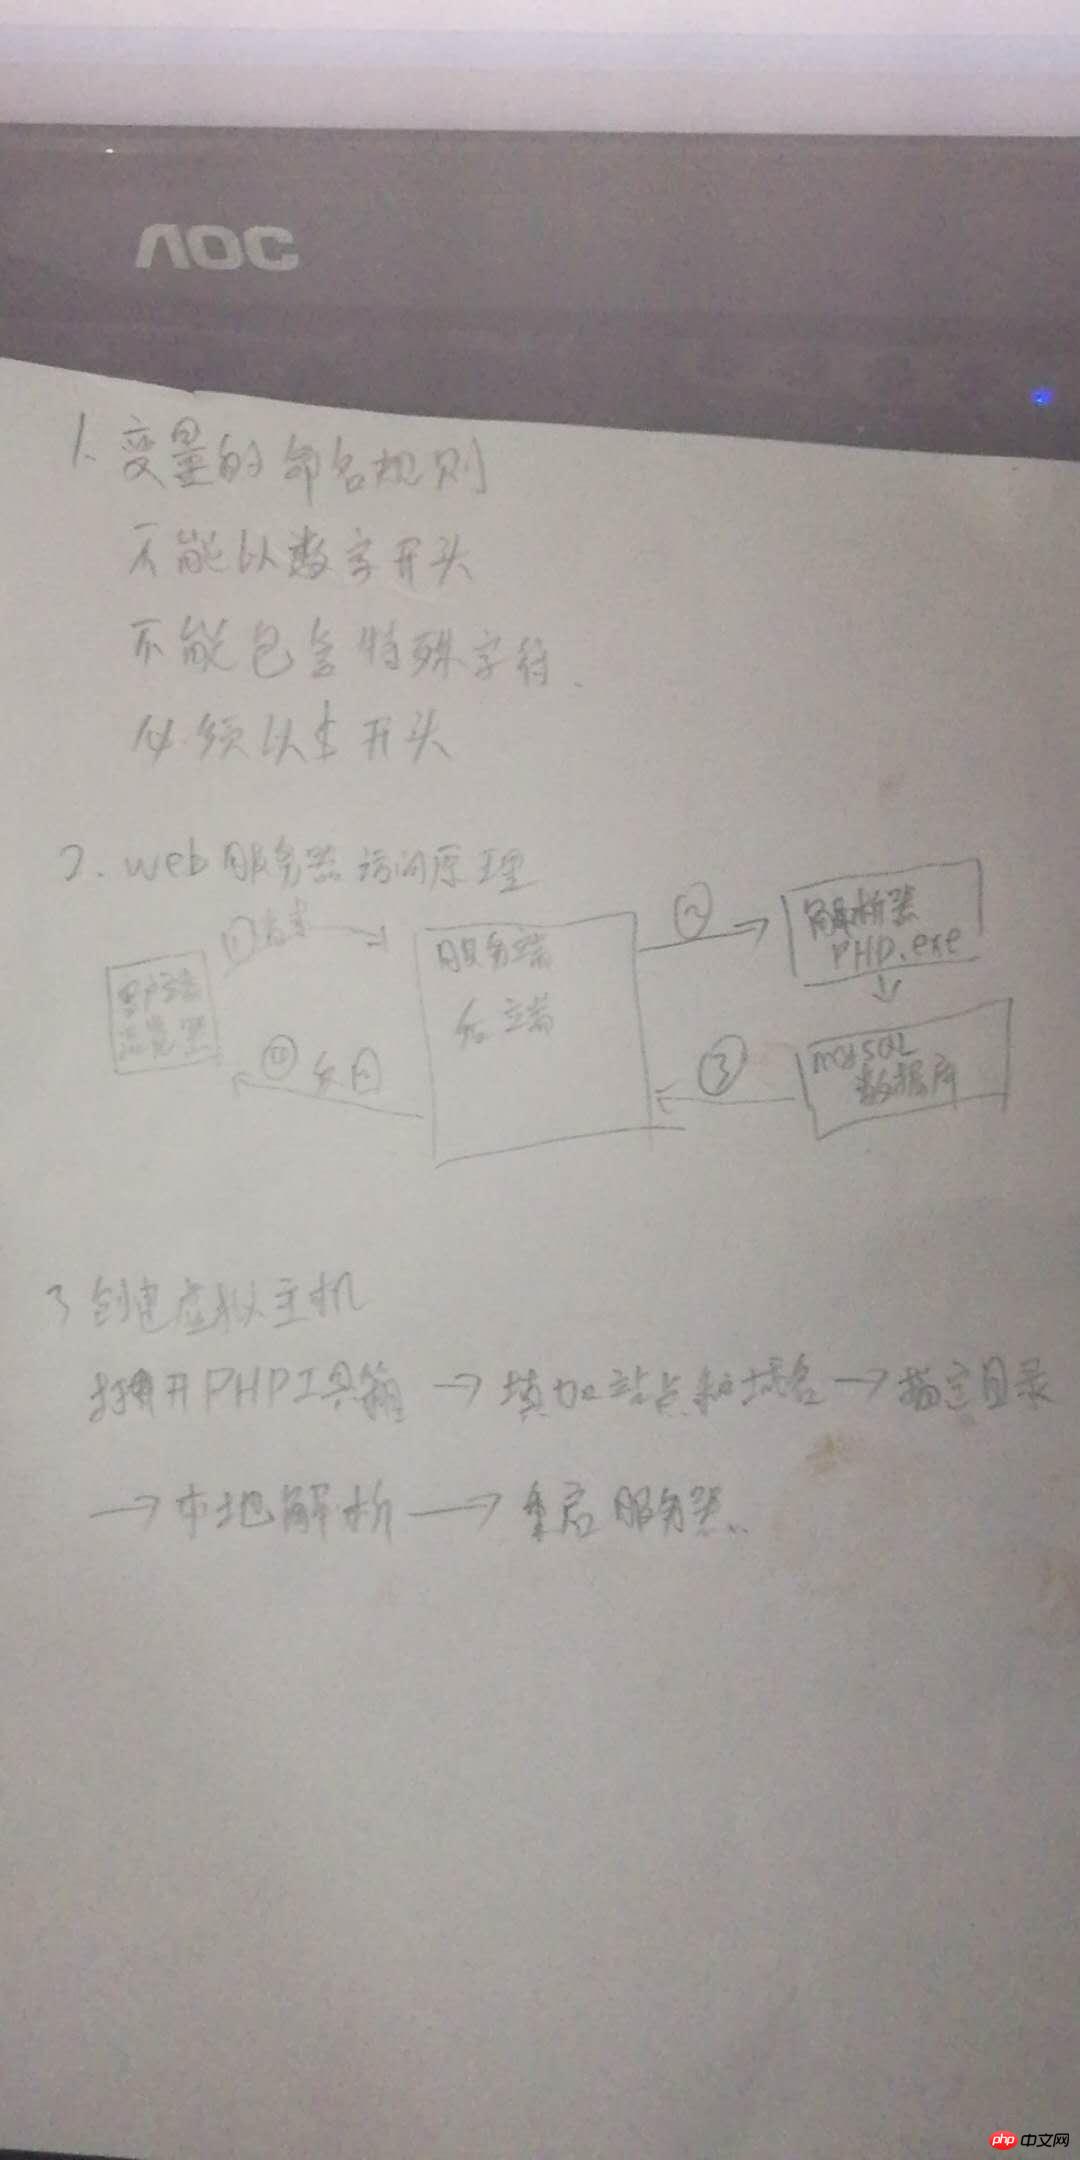 AOC
1. 变量的命名规则
不能以数字开头
不能包含特殊字符.
必须以$开头
2. web服务器访问原理
① 请求
②
解析器
PHP.exe
服务端
后端
客户端
浏览器
④ 返回
③
mysql
数据库
3 创建虚拟主机
打开PHP工具箱 → 填加站点和域名 → 指定目录
→ 本地解析 → 重启服务器.
php 中文网